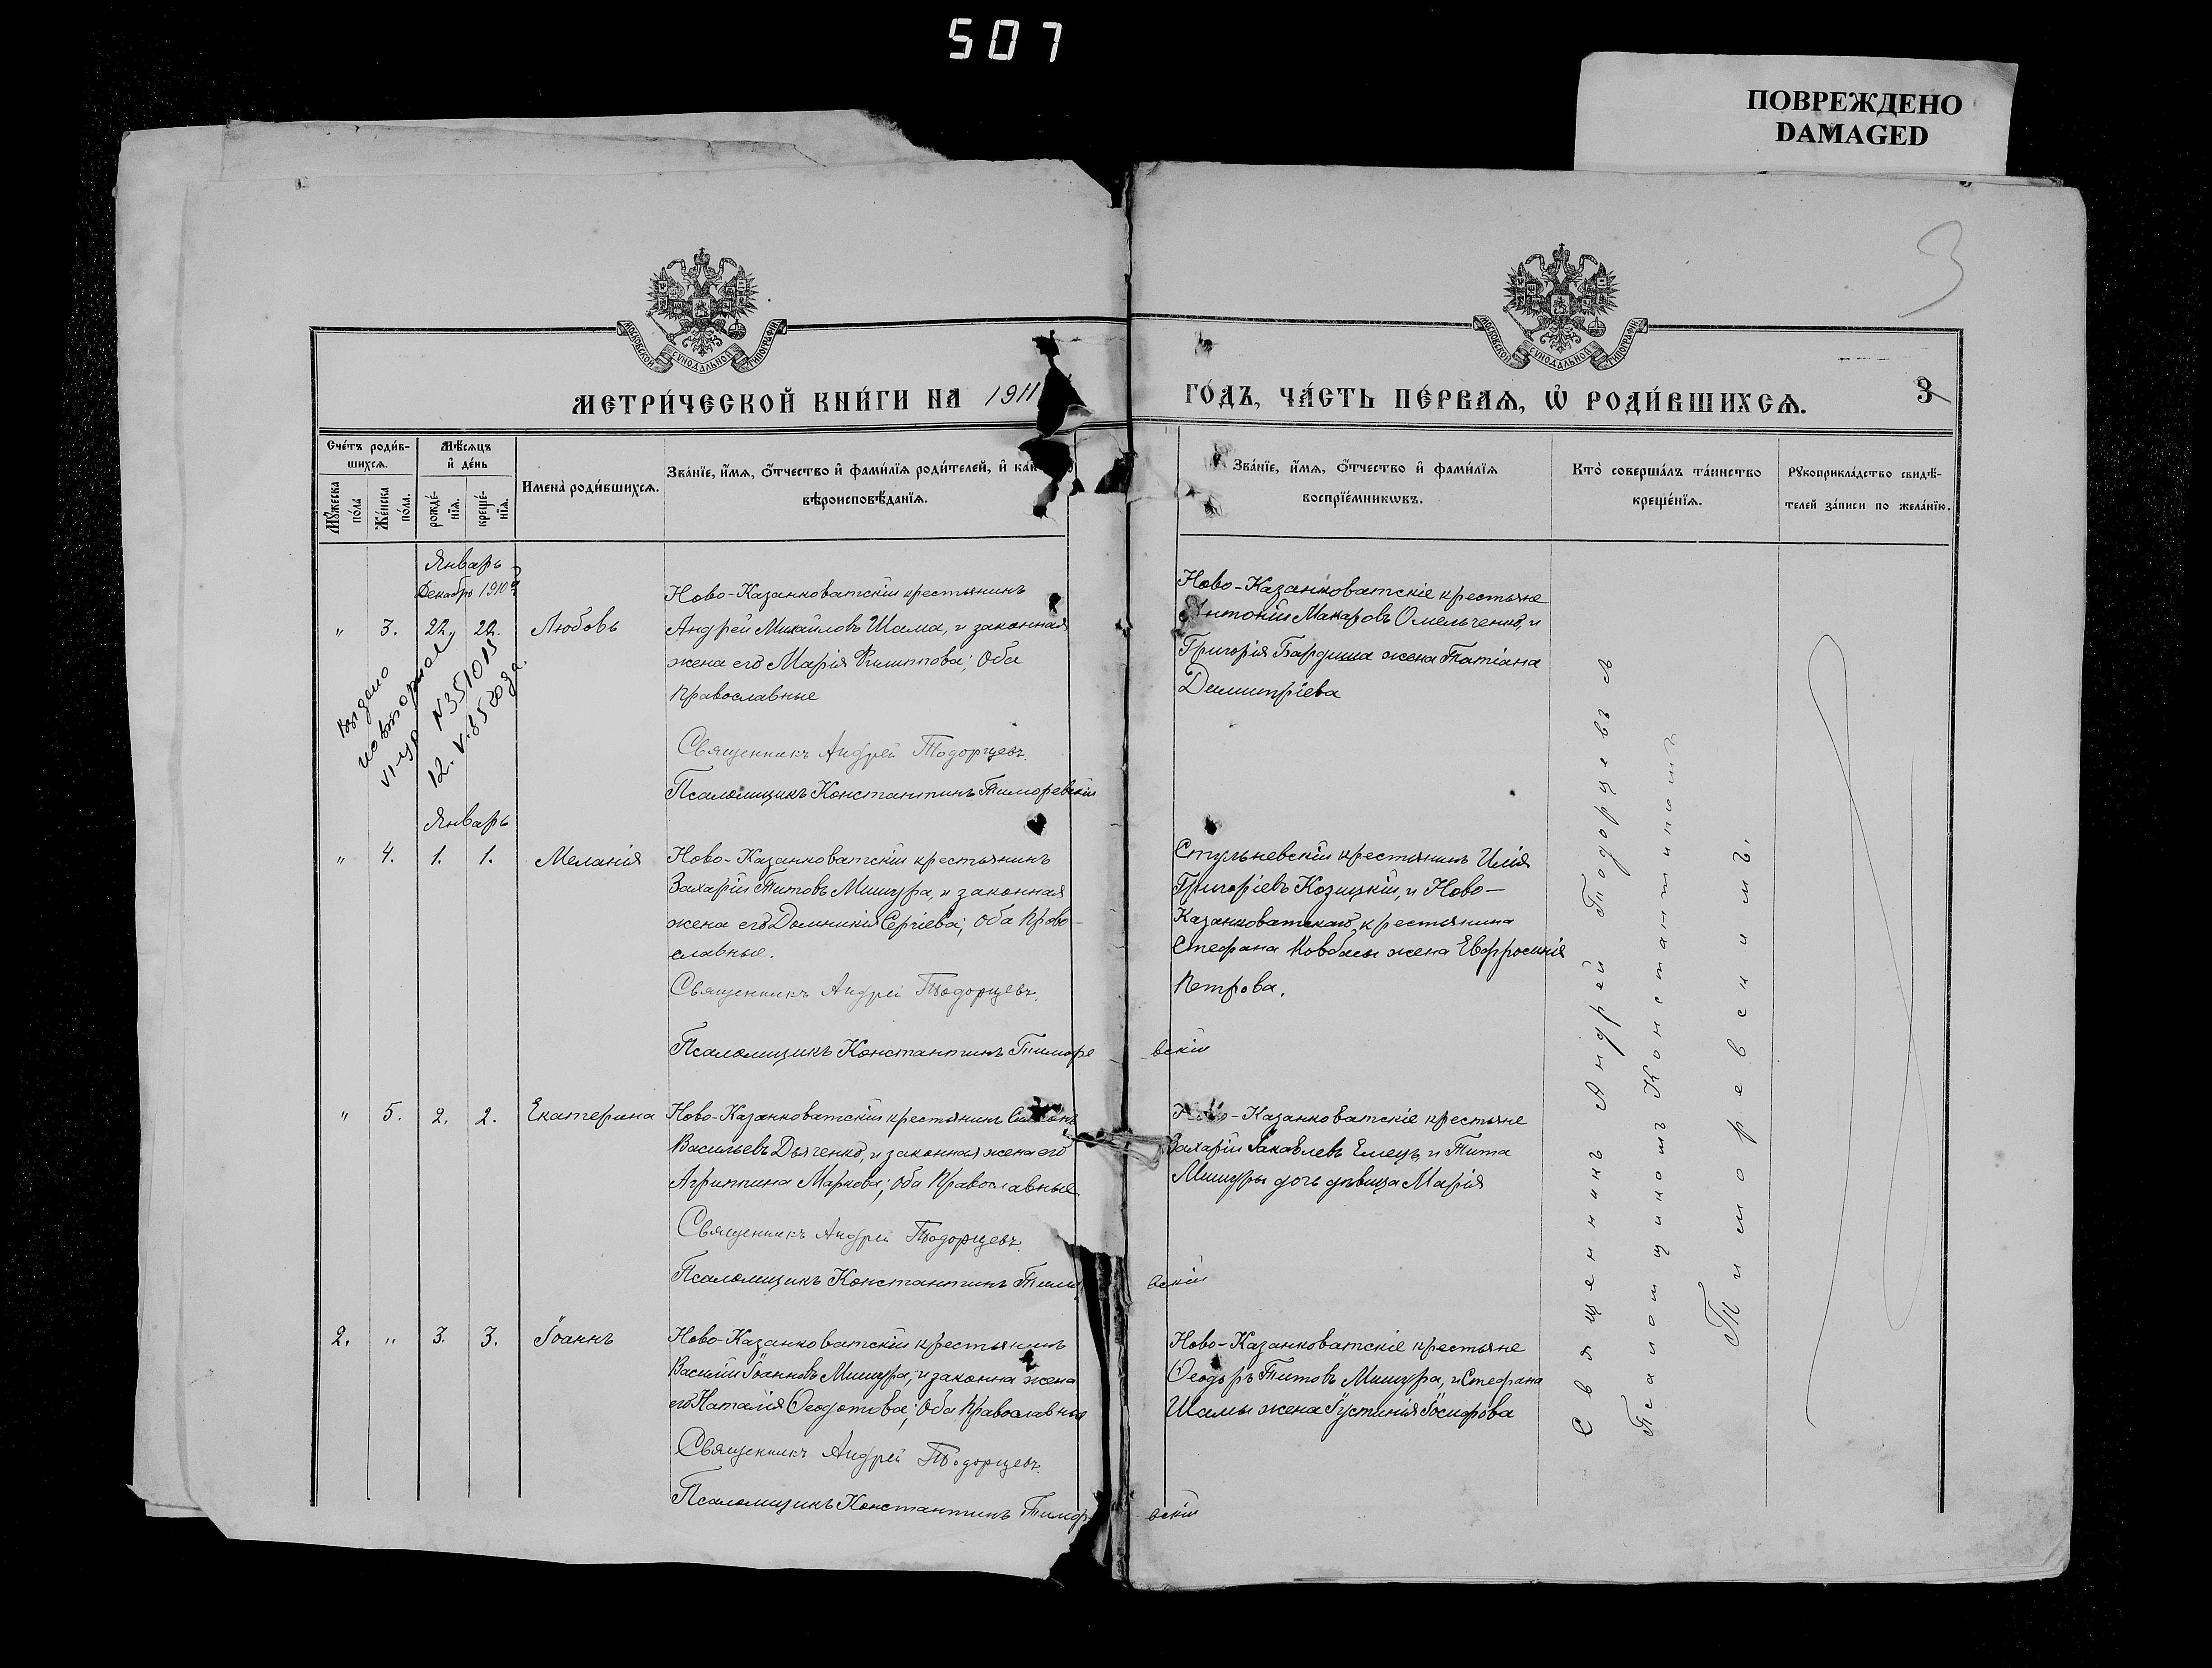 507
ПОВРЕЖДЕНО
DAMAGED
3
МОСКОВСКОЙ СѴНОДАЛЬНОЙ ТИПОГРАФІИ
МОСКОВСКОЙ СѴНОДАЛЬНОЙ ТИПОГРАФІИ
МЕТРИ́ЧЕСКОЙ КНИ́ГИ НА 1911
ГО́ДЪ, ЧА́СТЬ ПЕ́РВАѦ, Ѡ҆ РОДИ́ВШИХСѦ.
3
Сче́тъ роди́в-
шихсѧ.
Мѣ́сѧцъ
и҆ де́нь
Мꙋ́жеска по́ла
Же́нска по́ла.
рожде́-
нїѧ.
креще́-
нїѧ.
Имена̀ роди́вшихсѧ.
Зва́нїе, и҆́мѧ, ѻ҆́тчество и҆ фами́лїѧ роди́телей, и҆
вѣроисповѣ́данїѧ.
Зва́нїе, и҆́мѧ, ѻ҆́тчество и҆ фами́лїѧ
воспрїе́мникѡвъ.
Кто̀ соверша́лъ та́инство
креще́нїѧ.
Рꙋкоприкла́дство свидѣ́-
телей за́писи по жела́нїю.
Январь
Декабрь 1910
" 3. 22. 22. Любовь
Ново-Казанковатскій крестьянинъ
Андрей Михайловъ Шама, и законная
жена его Марія Филиппова; Оба
Православные
Священникъ Андрей Тодорцевъ.
Псаломщикъ Константинъ Тиморевскій
Ново-Казанковатскіе крестьяне
Антоній Макаровъ Омельченко, и
Григорія Бардиша жена Татіана
Димитріева
выдано
повторное
VI-УР N351015
12.V.
Январь
" 4. 1. 1. Меланія
Ново-Казанковатскій крестьянинъ
Захарій Титовъ Мишура, и законная
жена его Домникія Сергіева; Оба Право-
славные.
Священникъ Андрей Тодорцевъ.
Псаломщикъ Константинъ Тиморевскій
Стульневскій крестьянинъ Илія
Григоріевъ Козицкій, и Ново-
Казанковатскаго крестьянина
Стефана Ковбасы жена Евфросинія
Петрова.
" 5. 2. 2. Екатерина
Ново-Казанковатскій крестьянинъ
Васильевъ Дьяченко, и законная жена его
Агриппина Маркова; Оба Православные
Священникъ Андрей Тодорцевъ.
Псаломщикъ Константинъ
вскій
Ново-Казанковатскіе крестьяне
Захарій Іаковлевъ Емецъ, и Тита
Мишуры дочь дѣвица Марія
2. " 3. 3. Іоаннъ
Ново-Казанковатскій крестьянинъ
Василій Іоанновъ Мишура, и законна жена
его Наталія Ѳеодотова; Оба Православные
Священникъ Андрей Тодорцевъ.
Псаломщикъ Константинъ Тимор
вскій
Ново-Казанковатскіе крестьяне
Ѳеодоръ Титовъ Мишура, и Стефана
Шамы жена Іустинія Іосифова
Священникъ Андрей Тодорцевъ съ
Псаломщикомъ Константиномъ
Тиморевскимъ.